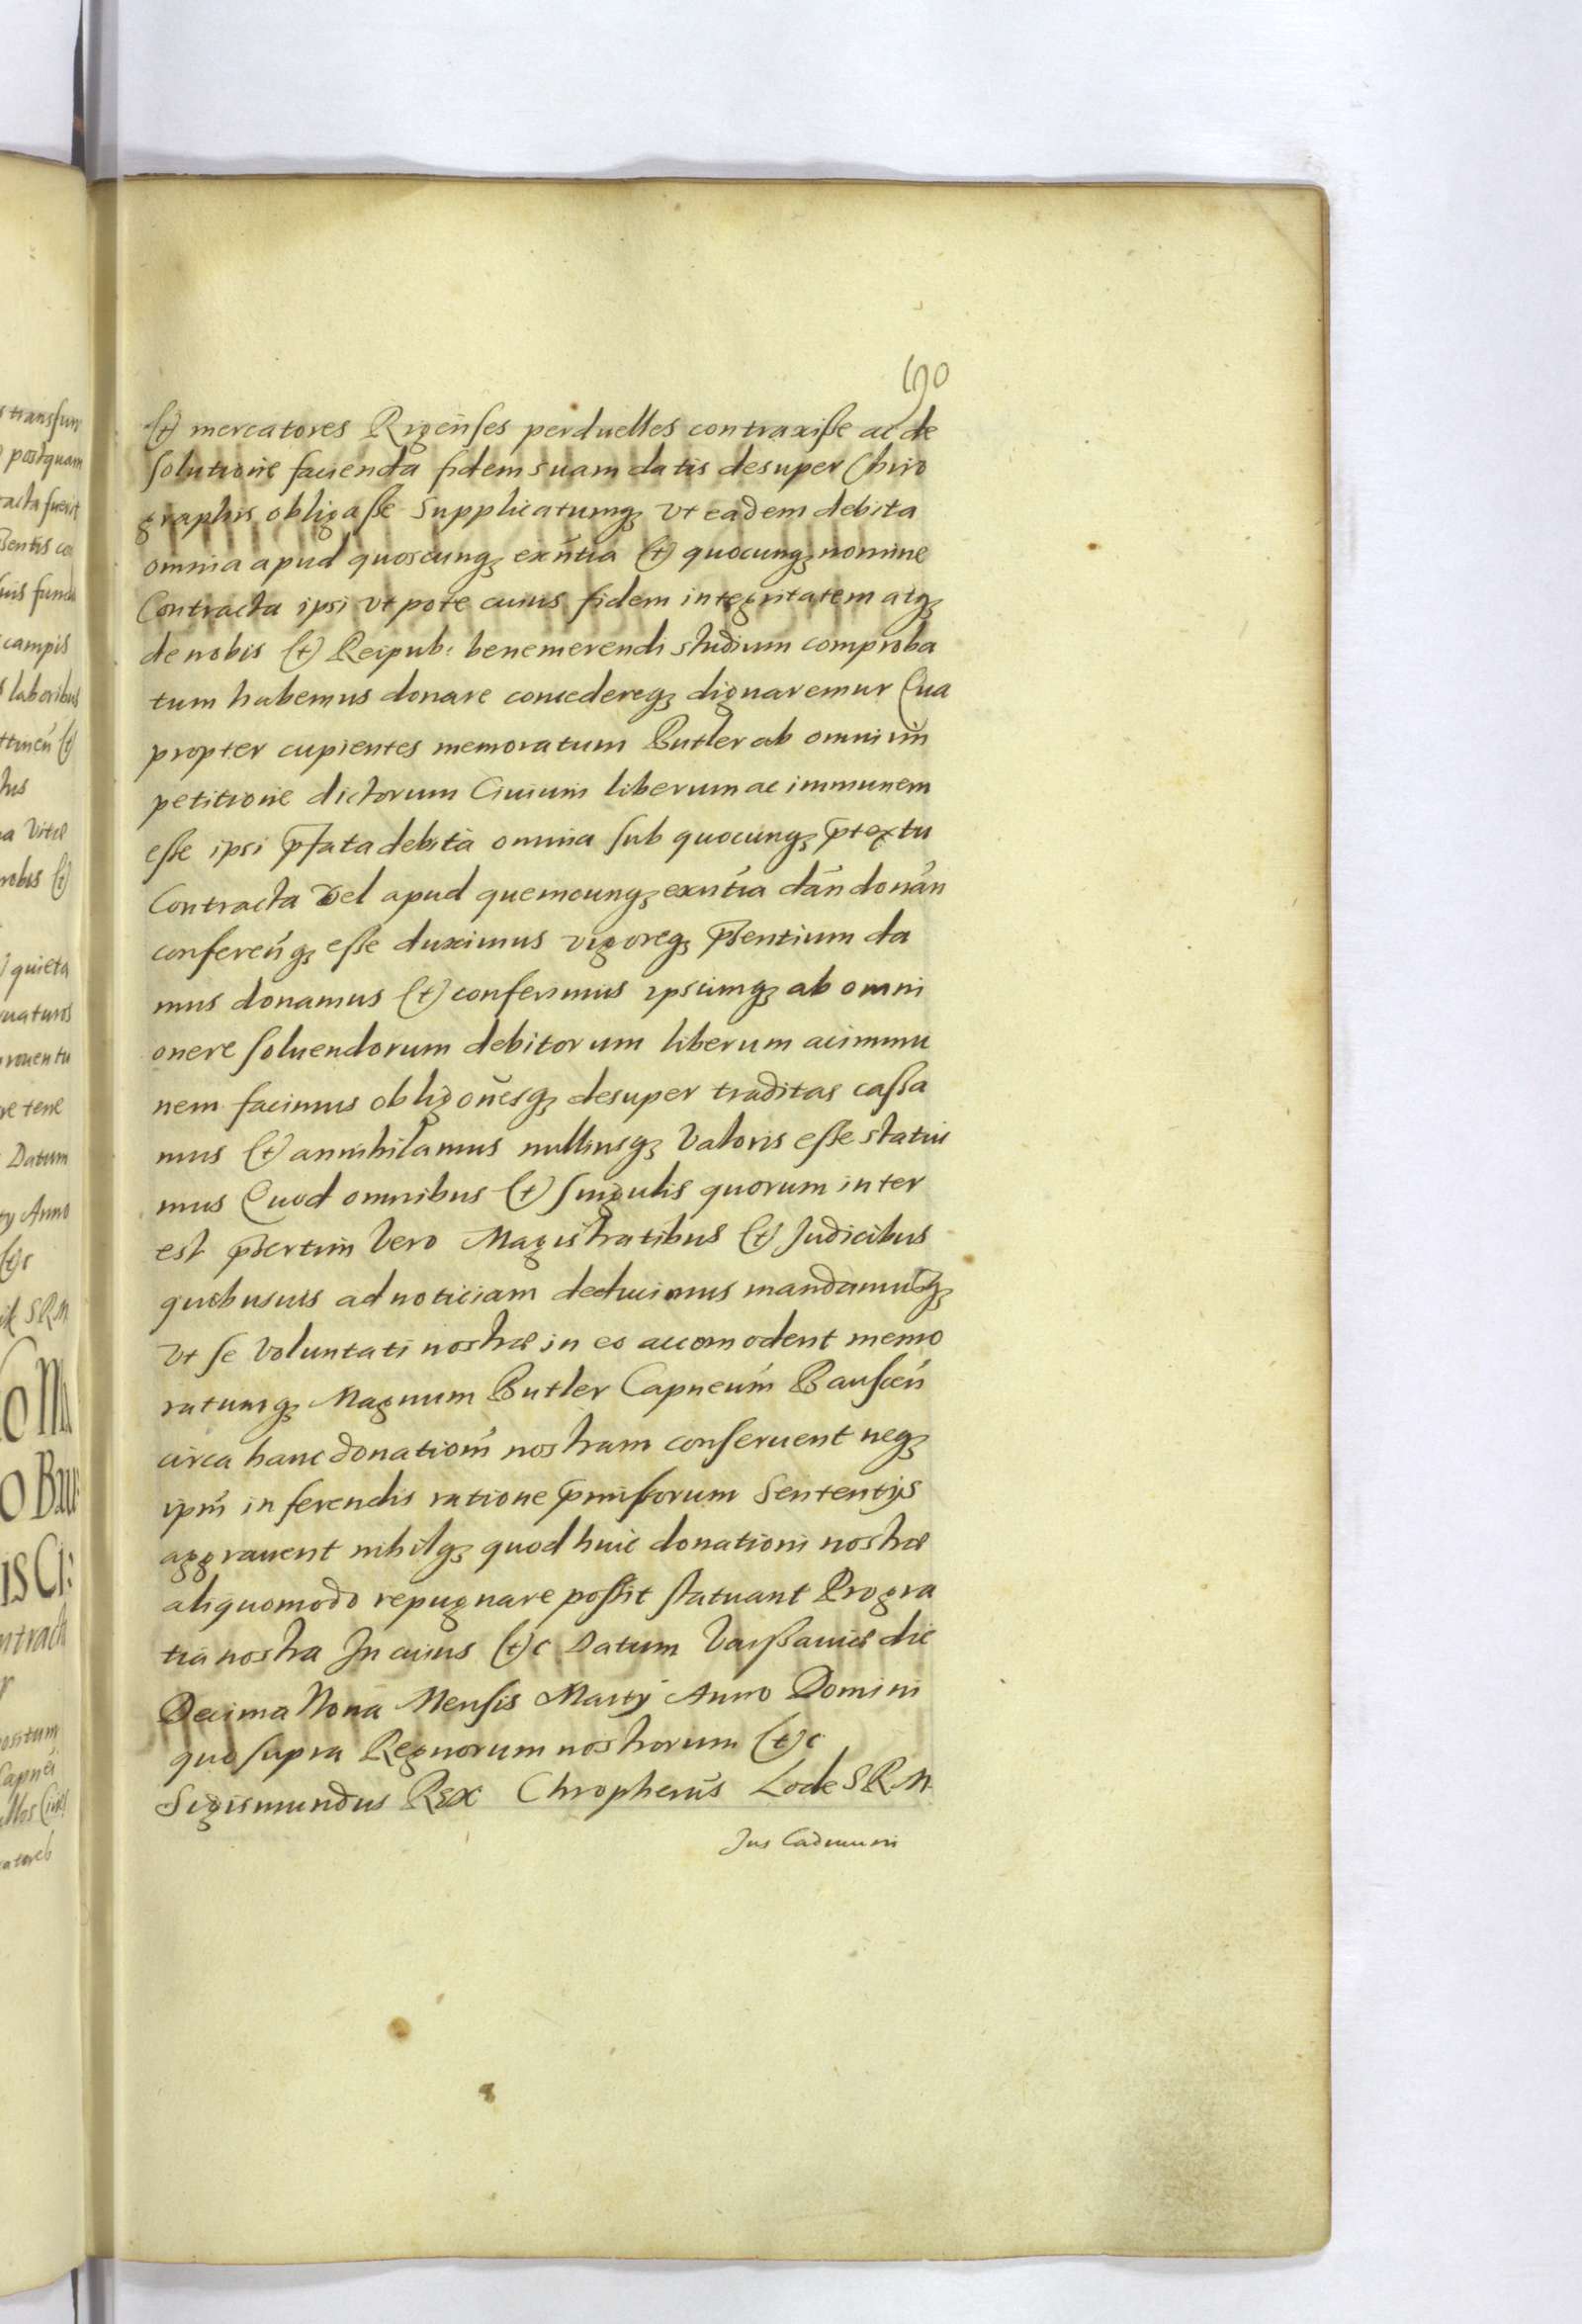 90
(et) mercatores Rigenses perduelles contraxisse ac de
solutione facienda fidem suam datis desuper Chiro
graphis obligasse Supplicatumq(ue) vt eadem debita
omnia apud quoscunq(ue) exn̄tia (et) quocunq(ue) nomine
Contracta ipsi vt pote cuius fidem integritatem atq(ue)
de nobis (et) Reipub: benemerendi studium comproba
tum habemus donare concedereq(ue) dignaremur Qua
propter cupientes memoratum Butler ab omni im
petitione dictorum Ciuium liberum ac immunem
esse ipsi p̄fata debita omnia sub quocunq(ue) p̄textu
Contracta vel apud quemcunq(ue) exn̄tia dan̄ donan̄
conferen̄q(ue) esse duximus vigoreq(ue) p̄sentium da
mus donamus (et) conferimus ipsumq(ue) ab omni
onere soluendorum debitorum liberum ac immu
nem facimus obligōnesq(ue) desuper traditas cassa
mus (et) annihilamus nulliusq(ue) valoris esse statui
mus Quod omnibus (et) singulis quorum inter
est p̄sertim vero Magistratibus (et) Judicibus
quibusuis ad noticiam deducimus mandamusq(ue)
vt se voluntati nostræ in eo accomodent memo
ratumq(ue) Magnum Butler Capneum̄ Bauscen̄
circa hanc donationm̄ nostram conseruent neq(ue)
ipm̄ in ferendis ratione p̄missorum Sententijs
aggrauent nihilq(ue) quod huic donationi nostræ
aliquomodo repugnare possit statuant Pro gra
tia nostra In cuius (et)c Datum Varssauiæ die
Decima Nona Mensis Martij Anno Domini
quo supra Regnorum nostrorum (et)c
Sigismundus Rex Chropherus̄ Lode S R M
Jus Caducum

s transsun
postquam
racta fuerit
campis
s laboribus
tus
a Vitæ
nobis (et)
quieta
re tene
Datum
ty Anno
(et)c
S R M
is Ci:
ntract